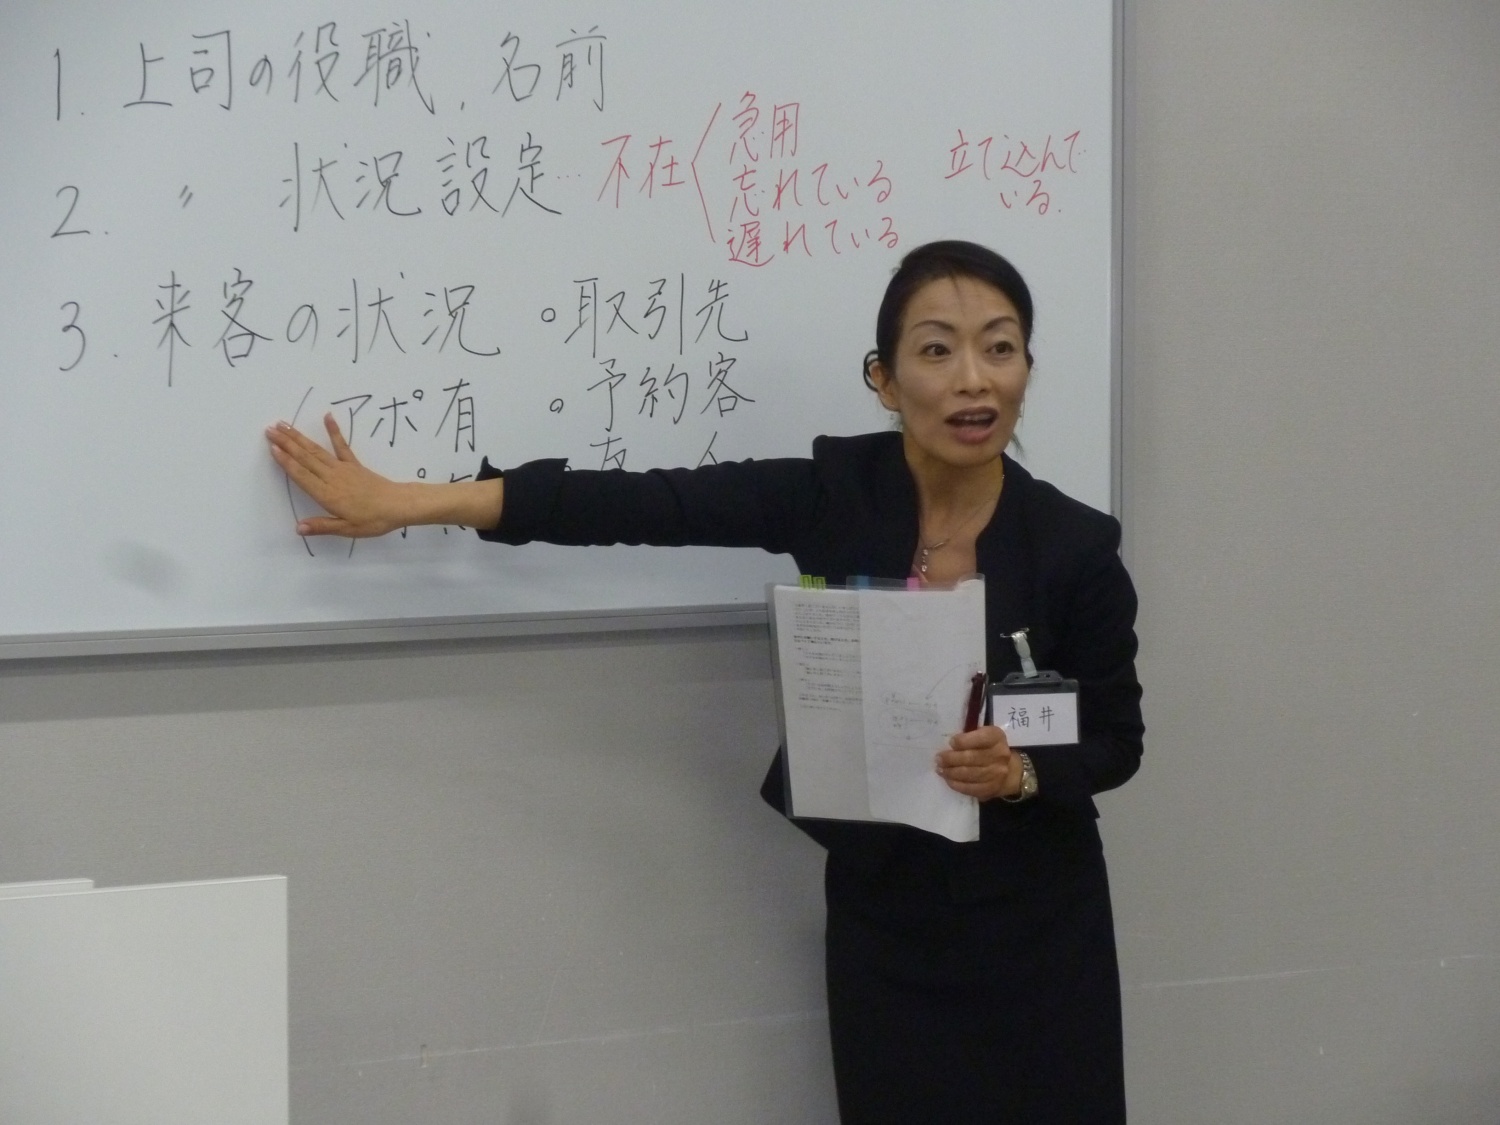 1. 上司の役職、名前
2. 〃 状況設定…不在
急用
忘れている
遅れている
立て込んで
いる.
3. 来客の状況
アポ有
○取引先
○予約客
福井